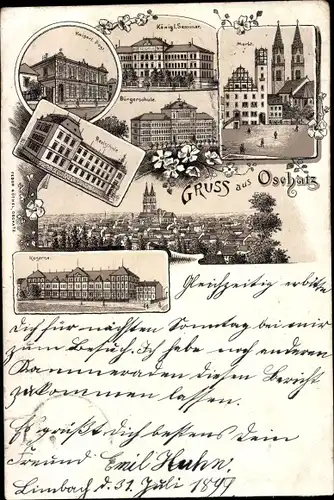 Kaiserl. Post
Königl. Seminar.
Markt.
Bürgerschule.
Realschule
GRUSS aus Oschatz
Kaserne.
Gleichzeitig erbitte
Dich für nächsten Sonntag bei mir
zum Besuch. Ich habe noch anderen
Kammeraden diesen Bericht
zukommen lassen.
Es grüßt Dich bestens Dein
Freund Emil Huhn.
Limbach d. 31. Juli 1897